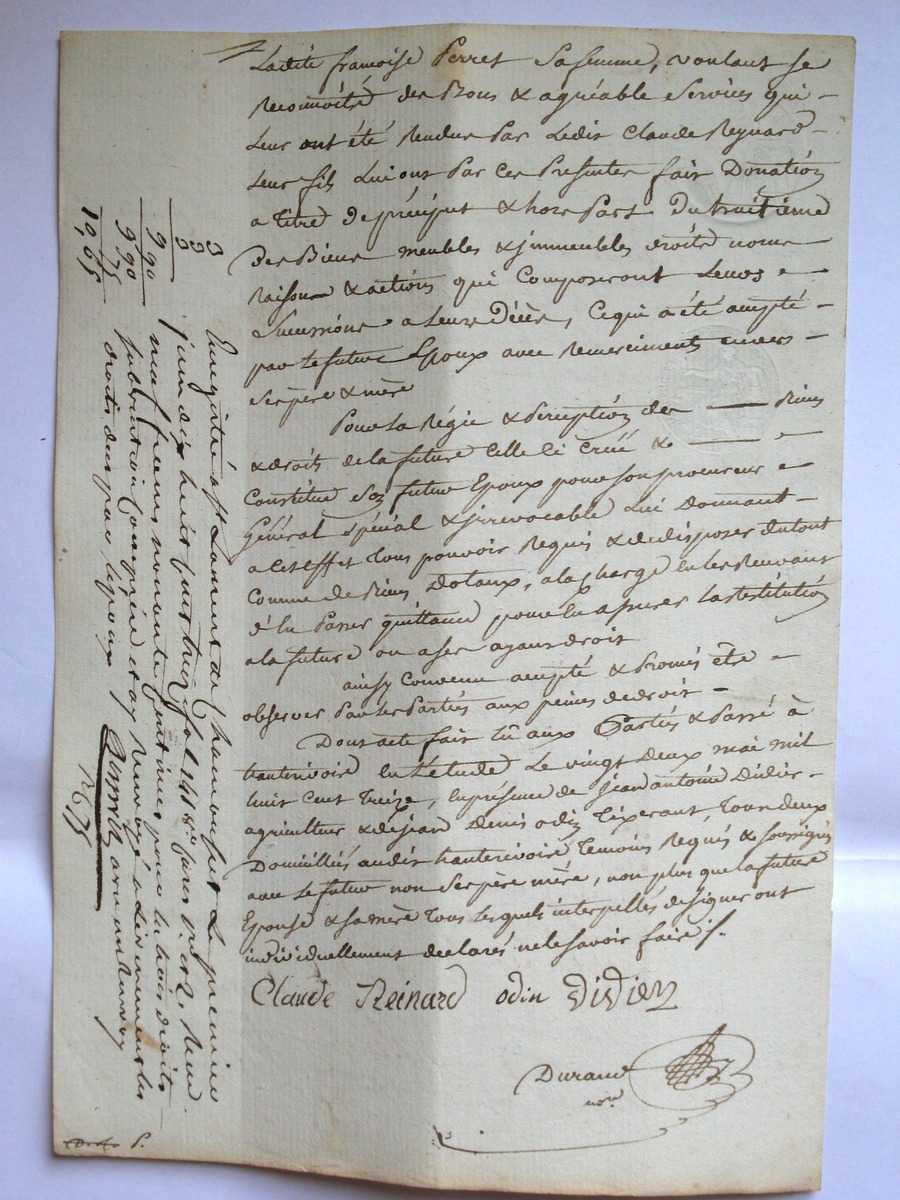 Ladite françoise Perret Sa femme, voulant se
Reconnoitre des Bons & agréable Services qui
Leur ont été Rendus Par Ledit Claude Reynard
Leur fils Lui ont Par Ces Presentes fait Donation
a titre de préciput & hors Part Du huitième
Des Biens meubles & jmmeubles droits noms
Raisons & actions qui Composeront Leurs
Successions a Leurs Décès, Ce qui a été accepté
par le futur Epoux avec Remerciments envers
Ses père & mère
Pour La Régie & Perception des Biens
& droits de la future Celle Ci Créé &
Constitue Son futur Epoux pour Son procureur
Général Spécial & jrrevocable Lui Donnant
a Cet Effet tous pouvoir Requis & de disposer du tout
Comme de Biens Dotaux, a la Charge En les Recevant
d'En Passer quittance pour En assurer La Restitution
a la future ou a Ses ayans droit
ainsy Convenu accepté & Promis être
observer Par les Parties aux peines de droit
Dont acte fait lû aux Parties & Passé à
hauterivoire En L'étude Le vingt deux mai mil
huit Cent Treize, En présence de Jean antoine Didier
agriculteur & de jean Denis odin Tixerant, tous deux
Domiciliés audit hauterivoire Temoins Requis & Soussignés
avec Le futur non Ses père mère, non plus que la future
Epouse & Sa mère tous lesquels interpellés de signer ont
individuellement declarés ne le Savoir faire ./.
Claude Reinard odin Didier
Durand
nore
Enregistré à St Laurent de Chamousset Le premier
juin dix huit Cent treize fol 141 Reçu
neuf francs nonante Centimes pour les trois droits
9 90
9 90
75
10,65